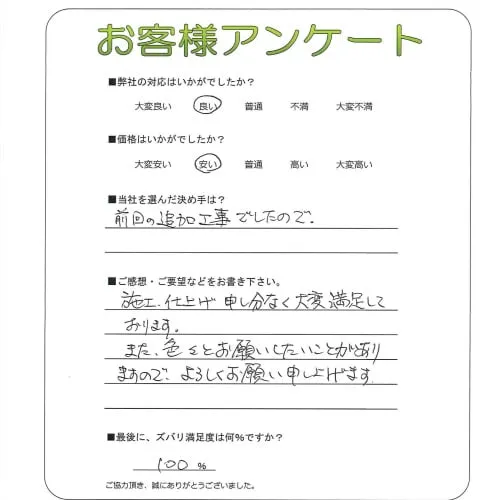 お客様アンケート
■弊社の対応はいかがでしたか?
大変良い 良い 普通 不満 大変不満
■価格はいかがでしたか?
大変安い 安い 普通 高い 大変高い
■当社を選んだ決め手は?
前回の追加工事でしたので。
■ご感想・ご要望などをお書き下さい。
施工、仕上げ 申し分なく大変満足して
おります。
また、色々とお願いしたいことがあり
ますので、よろしくお願い申し上げます
■最後に、ズバリ満足度は何%ですか?
100 %
ご協力頂き、誠にありがとうございました。